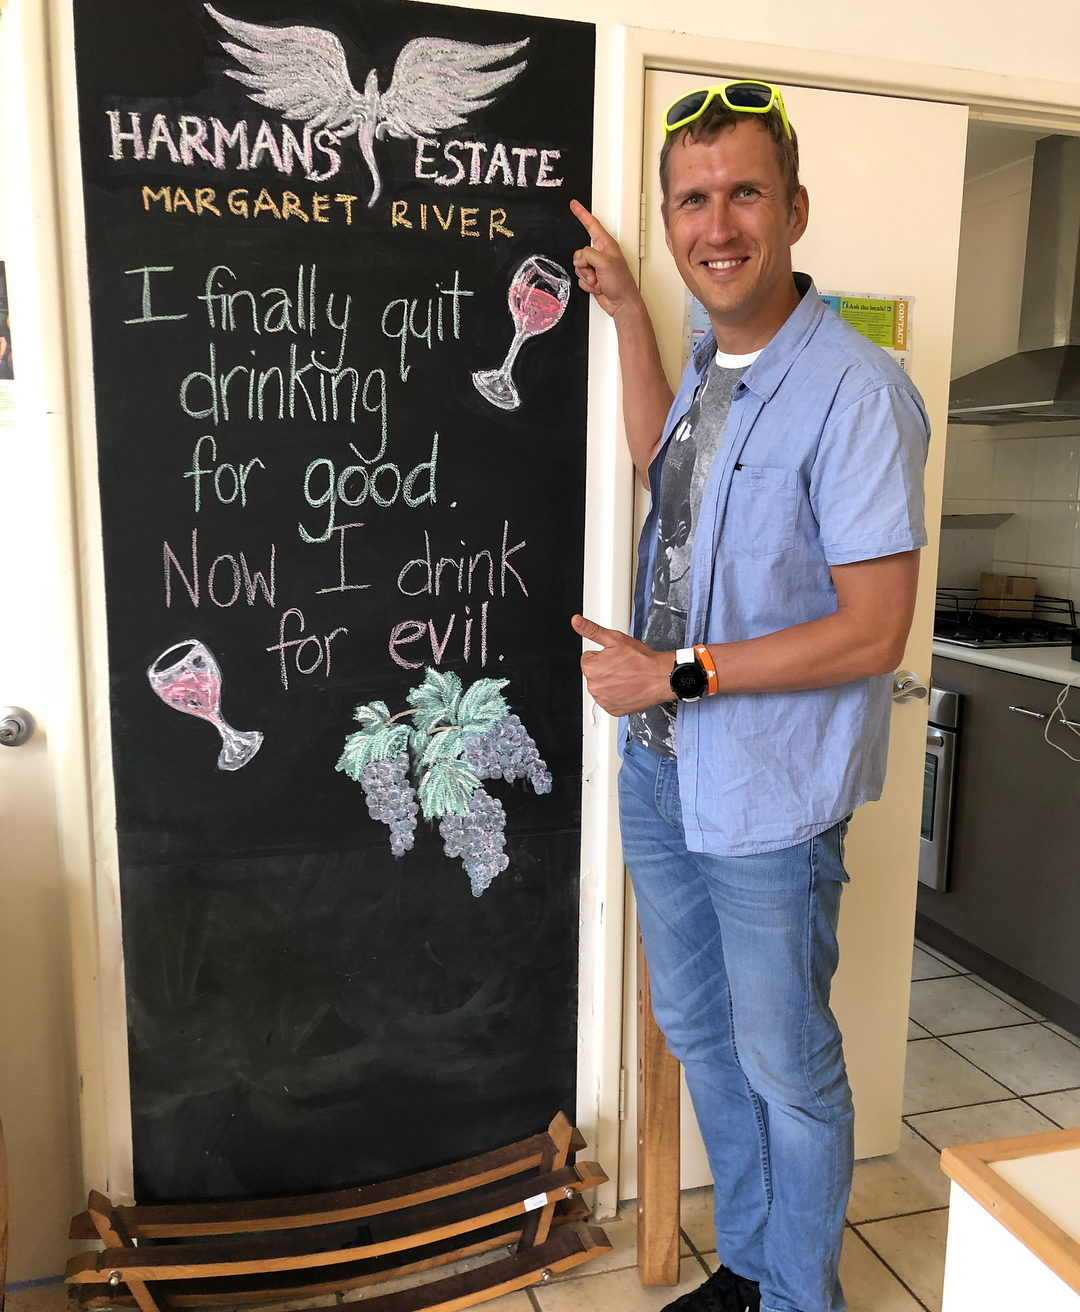 HARMANS ESTATE
MARGARET RIVER
I finally quit
drinking
for good.
Now I drink
for evil.
Ask the locals!
CONTACT